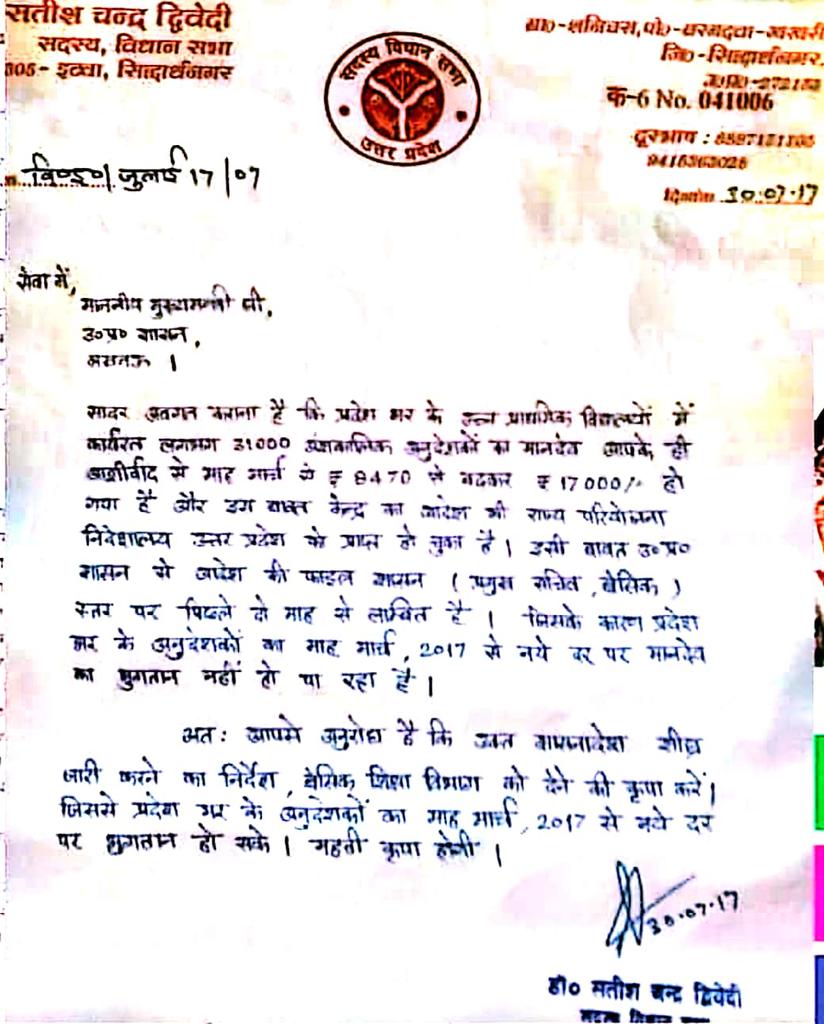 सतीश चन्द्र द्विवेदी
सदस्य, विधान सभा
305- इटवा, सिद्धार्थनगर
सदस्य विधान सभा
उत्तर प्रदेश
ग्रा०-शनिचरा, पो०-
जि०-सिद्धार्थनगर,
क-6 No. 041006
दूरभाष :
9415363026
दिनांक 30.07.17
वि०स०/जुलाई 17/07
सेवा में,
माननीय मुख्यमन्त्री जी,
उ०प्र० शासन,
लखनऊ ।
सादर अवगत कराना है कि प्रदेश भर के उच्च प्राथमिक विद्यालयों में
कार्यरत लगभग 31000 अंशकालिक अनुदेशकों का मानदेय आपके ही
आशीर्वाद से माह मार्च से ₹ 8470 से बढ़कर ₹ 17000/- हो
गया है और इस बाबत केन्द्र का आदेश भी राज्य परियोजना
निदेशालय उत्तर प्रदेश को प्राप्त हो चुका है । इसी बाबत उ०प्र०
शासन से आदेश की फाइल शासन ( प्रमुख सचिव , बेसिक )
स्तर पर पिछले दो माह से लम्बित है । जिसके कारण प्रदेश
भर के अनुदेशकों का माह मार्च , 2017 से नये दर पर मानदेय
का भुगतान नहीं हो पा रहा है ।
अत: आपसे अनुरोध है कि उक्त शासनादेश शीघ्र
जारी करने का निर्देश , बेसिक शिक्षा विभाग को देने की कृपा करें ।
जिससे प्रदेश भर के अनुदेशकों का माह मार्च , 2017 से नये दर
पर भुगतान हो सके । महती कृपा होगी ।
30.07.17
डॉ० सतीश चन्द्र द्विवेदी
सदस्य विधान सभा